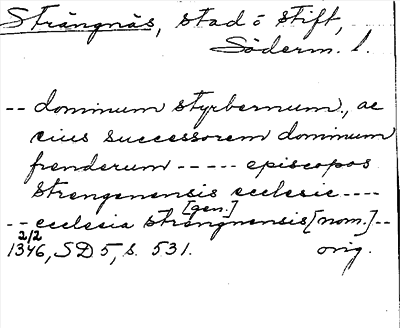 Strängnäs, stad o stift,
Söderm. l.
-- dominum styrbernum, ac
eius successorem dominum
frenderum ----- episcopos
Strengenensis ecclesie ----
[gen.]
-- ecclesia strengnensis [nom.] --
2/2
1346, SD 5, s. 531. orig.